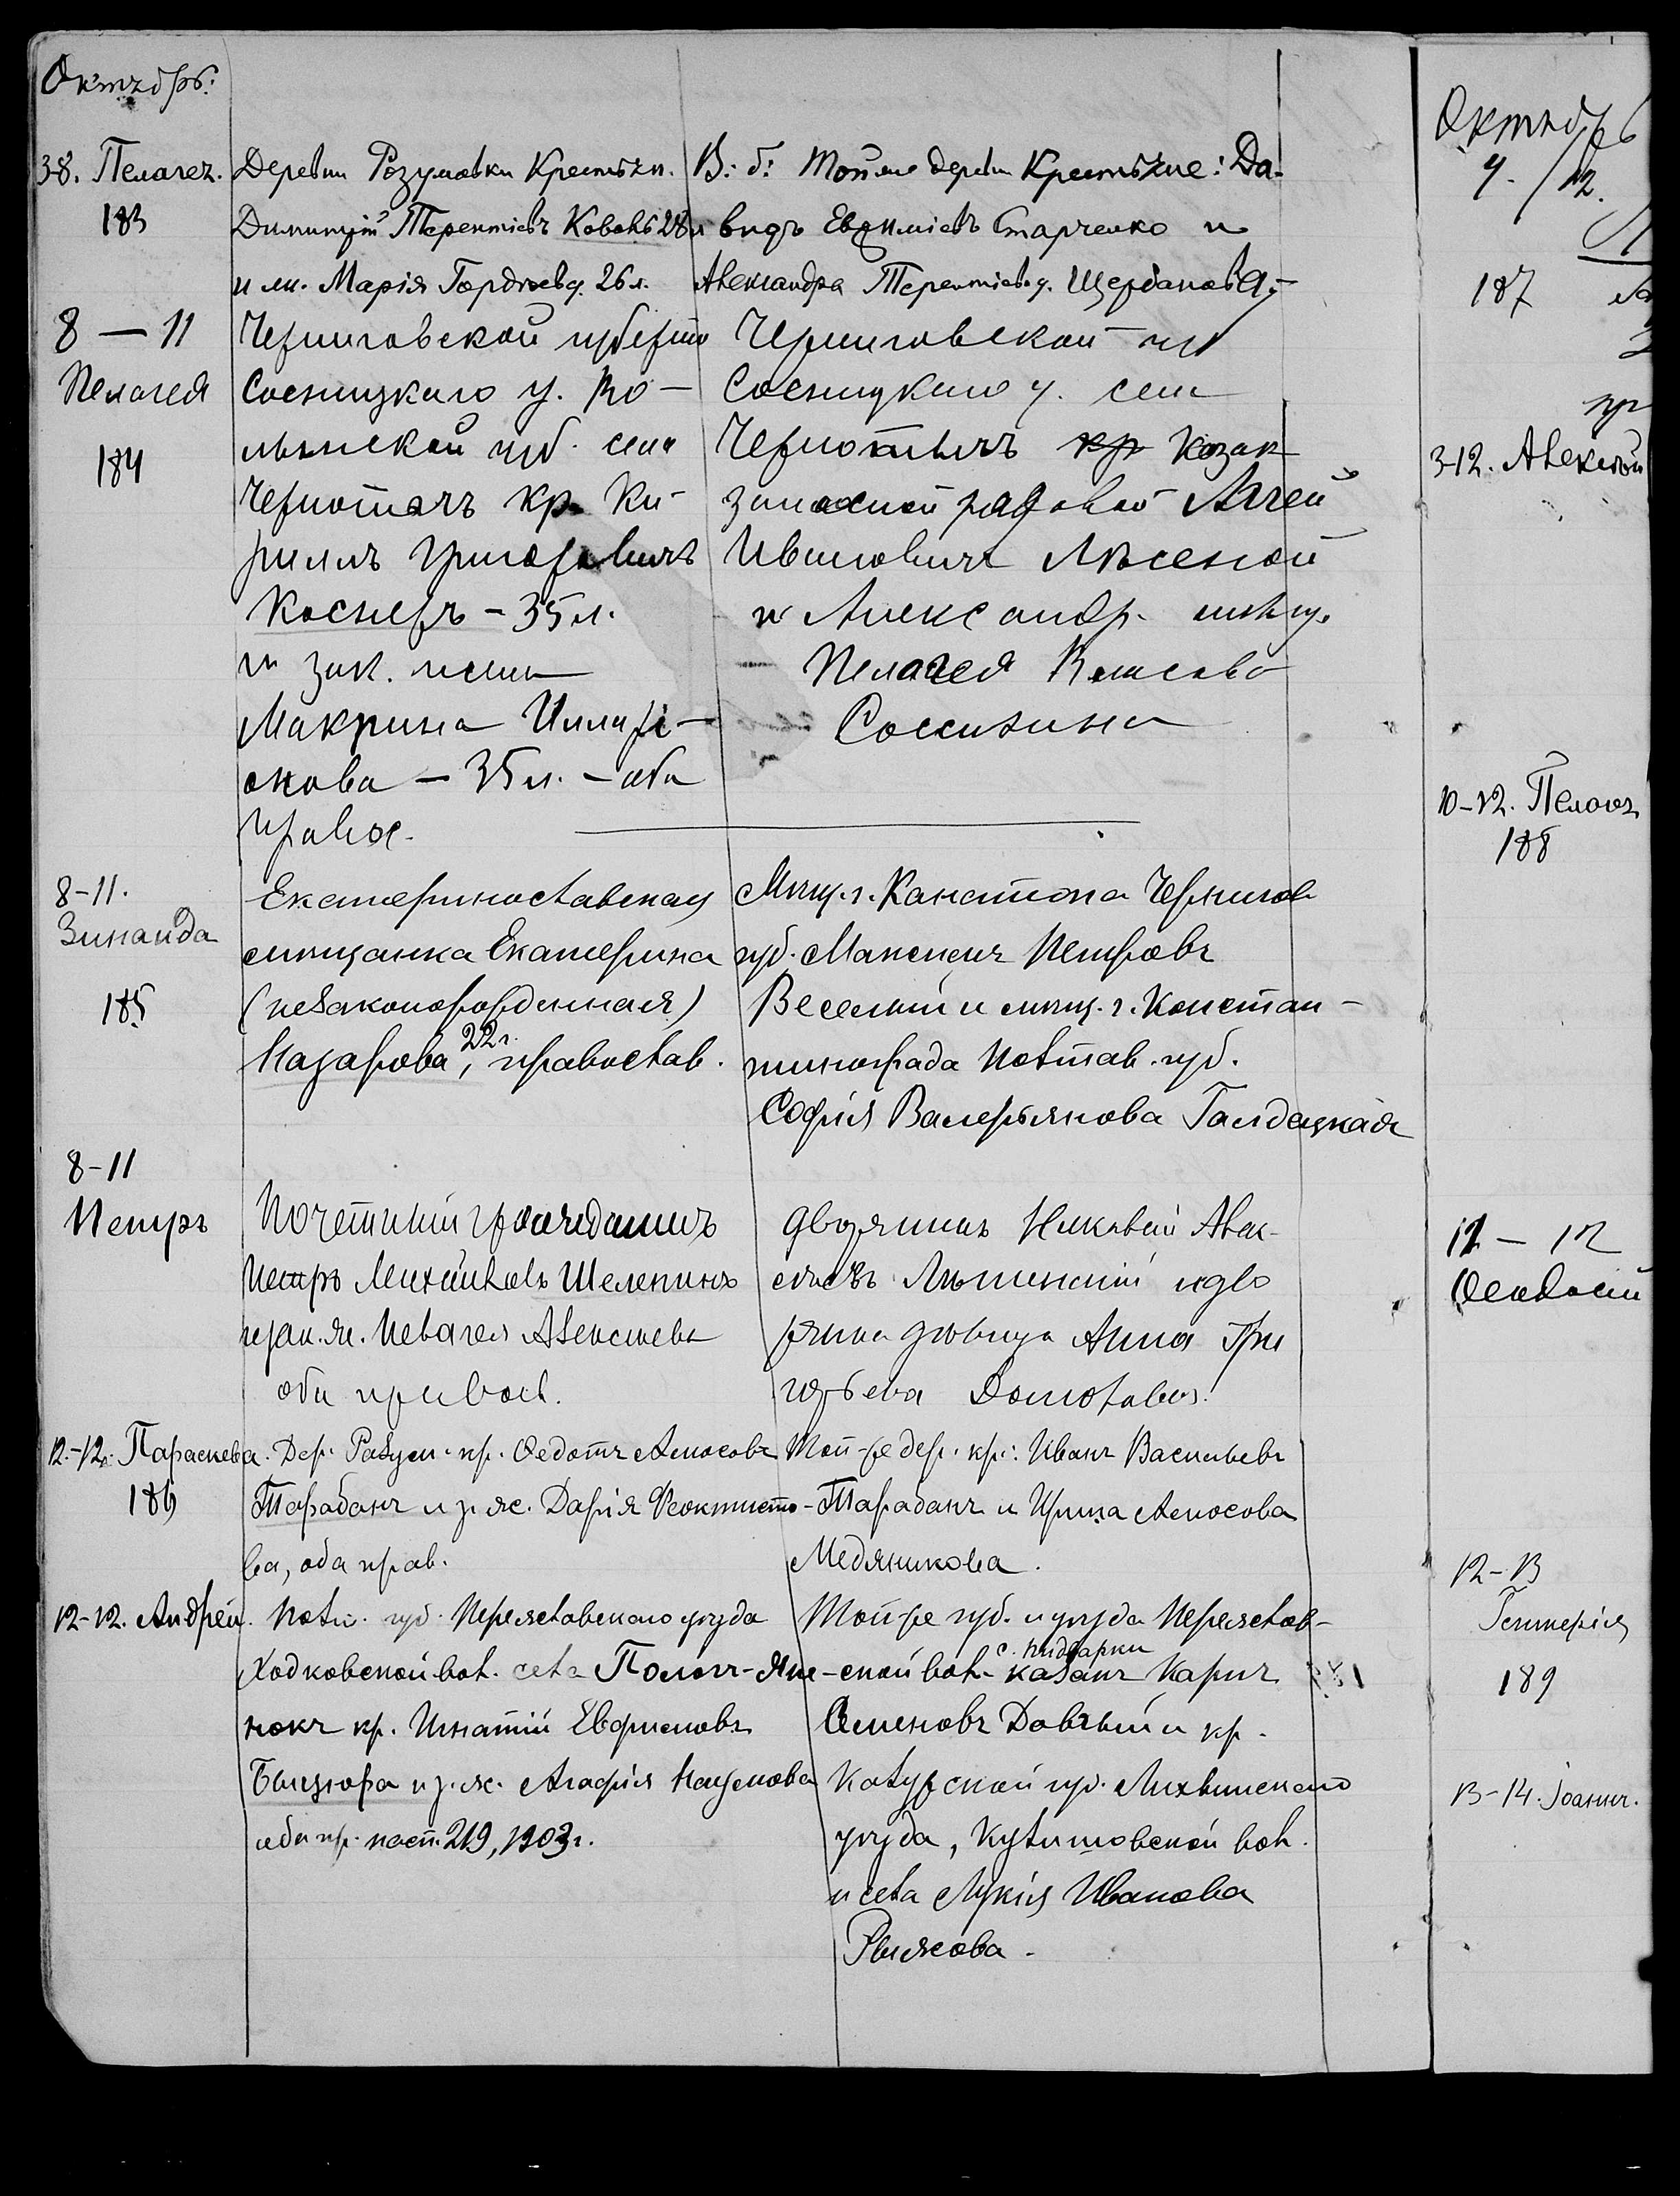 Октябрь.
3-8. Пелагея.
183
Деревни Розумовки Крестьян.
Димитрій Терентіевъ Коваль 28 л
и ж. Марія Гордѣева. 26 л.
В: б: Той же дерев. Крестьяне: Да-
видъ Евѳиміевъ Старченко и
Александра Терентіева. Щербакова.-
8 — 11
Пелагея
184
Черниговской губерніи
Сосницкаго у. Во-
лынской губ. села
Чернотичъ кр. Ки-
риллъ Григорьевичъ
Коснеръ - 35 л.
и зак. жена
Макрина Илларі-
онова - 35 л. - оба
правос.
Черниговской губ
Сосницкаго у. села
Чернотичъ кр козак
запасной рядовой Алексѣй
Ивановичъ Лѣсеной
и Александр. мѣщ.
Пелагея Власова
Сосихина
8-11.
Зинаида
185
Екатеринославская
мѣщанка Екатерина
(незаконорожденная)
Назарова, 22 г. православ.
Мѣщ. г. Канатопа Чернигов
губ. Максимъ Петровъ
Веселый и мѣщ. г. Констан-
тинограда Полтав. губ.
Софія Валерьянова Галдецкая
8-11
Петръ
Почетный гражданинъ
Петръ Михайловъ Шелепинъ
и зак. ж. Пелагея Алексѣева
оба правосл.
дворянинъ Николай Алек-
сѣевъ Льтинскій и дво
рянка дѣвица Анна Гри
горьева
12-12. Параскева.
186
Дер. Разум. кр. Ѳедотъ Амосовъ
Тарабанъ и з. ж. Дарія Ѳеоктисто-
ва, оба прав.
Той-же дер. кр.: Иванъ Васильевъ
Тарабанъ и Ирина Амосова
Медяникова.
12-12. Андрей.
Полт. губ. Переяславского уѣзда
Ходковской вол. села Пологи-Яне-
нокъ кр. Игнатій Евфимовъ
Быцюра и з. ж. Агафія Наумова
оба пр. пост. 219, 1903 г.
Той-же губ. и уѣзда Переяслав-
ской вол. с. Пидварки казакъ Карпъ
Семеновъ Довгый и кр.
Калужской гу. Лихвинскаго
уѣзда, Кулешовской вол.
и села Лукія Иванова
Рыжкова.
Октябрь
4. / 12.
187
3-12. Алексѣй
10-12. Пелагея
188
12 — 12
Ѳеодосій
12-13
Гликерія
189
13-14. Іоаннъ.